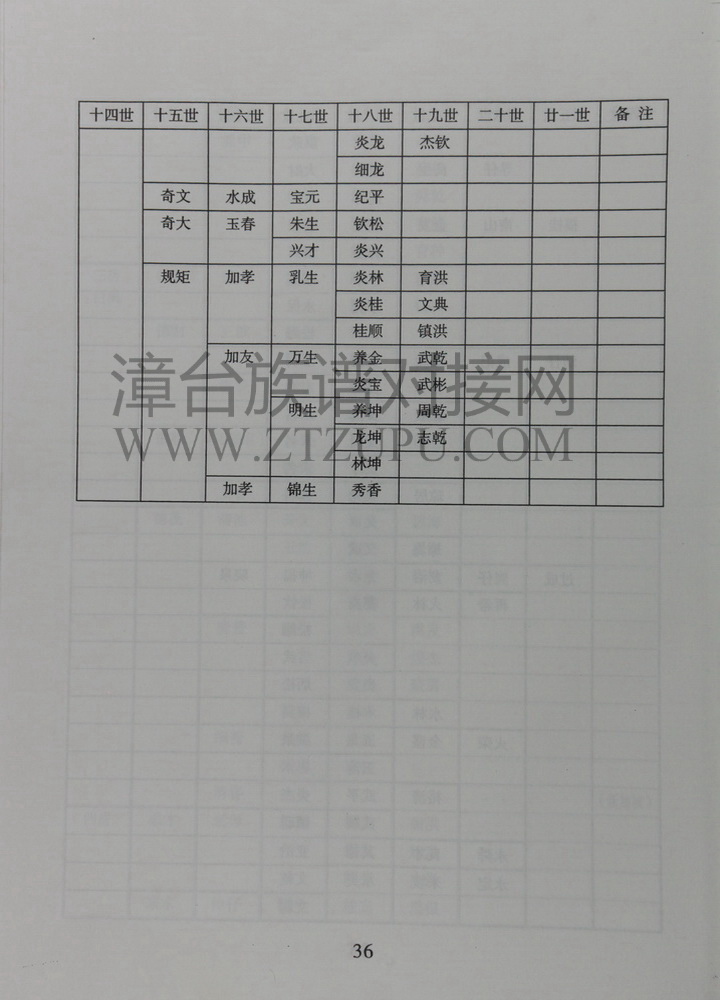 十四世 十五世 十六世 十七世 十八世 十九世 二十世 廿一世 备注
炎龙 杰钦
细龙
奇文 水成 宝元 纪平
奇大 玉春 朱生 钦松
兴才 炎兴
规矩 加孝 乳生 炎林 育洪
炎桂 文典
桂顺 镇洪
加友 万生 养金 武乾
炎宝 武彬
明生 养坤 周乾
龙坤 志乾
林坤
加孝 锦生 秀香
漳台族谱对接网
WWW.ZTZUPU.COM
36